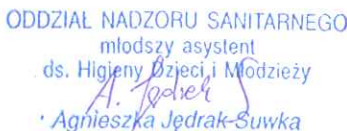 ODDZIAŁ NADZORU SANITARNEGO
młodszy asystent
ds. Higieny Dzieci i Młodzieży
A. Jędrek
Agnieszka Jędrak-Suwka